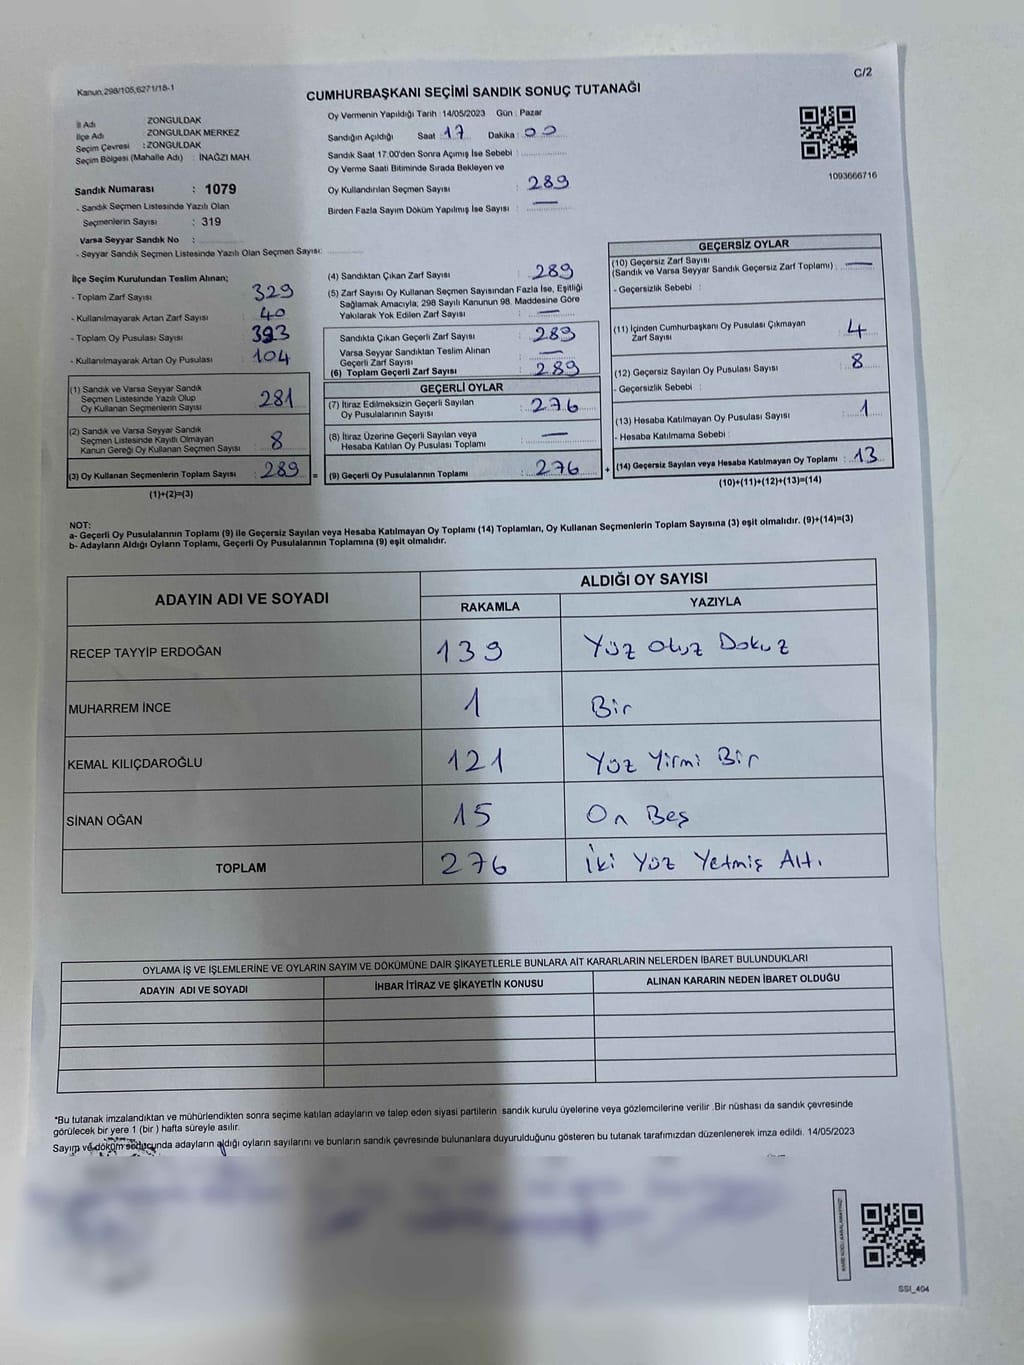 Kanun,298/105,6271/18-1
C/2
CUMHURBAŞKANI SEÇİMİ SANDIK SONUÇ TUTANAĞI
İl Adı : ZONGULDAK
İlçe Adı : ZONGULDAK MERKEZ
Seçim Çevresi : ZONGULDAK
Seçim Bölgesi (Mahalle Adı) : İNAĞZI MAH.
Sandık Numarası : 1079
- Sandık Seçmen Listesinde Yazılı Olan
Seçmenlerin Sayısı : 319
Varsa Seyyar Sandık No :
- Seyyar Sandık Seçmen Listesinde Yazılı Olan Seçmen Sayısı:
Oy Vermenin Yapıldığı Tarih : 14/05/2023 Gün : Pazar
Sandığın Açıldığı Saat : 17 Dakika : 00
Sandık Saat 17:00'den Sonra Açımış İse Sebebi :
Oy Verme Saati Bitiminde Sırada Bekleyen ve
Oy Kullandırılan Seçmen Sayısı : 289
Birden Fazla Sayım Döküm Yapılmış İse Sayısı : —
1093666716
İlçe Seçim Kurulundan Teslim Alınan;
- Toplam Zarf Sayısı : 329
- Kullanılmayarak Artan Zarf Sayısı : 40
- Toplam Oy Pusulası Sayısı : 393
- Kullanılmayarak Artan Oy Pusulası : 104
(1) Sandık ve Varsa Seyyar Sandık
Seçmen Listesinde Yazılı Olup
Oy Kullanan Seçmenlerin Sayısı : 281
(2) Sandık ve Varsa Seyyar Sandık
Seçmen Listesinde Kayıtlı Olmayan
Kanun Gereği Oy Kullanan Seçmen Sayısı : 8
(3) Oy Kullanan Seçmenlerin Toplam Sayısı : 289 =
(1)+(2)=(3)
(4) Sandıktan Çıkan Zarf Sayısı : 289
(5) Zarf Sayısı Oy Kullanan Seçmen Sayısından Fazla İse, Eşitliği
Sağlamak Amacıyla; 298 Sayılı Kanunun 98. Maddesine Göre
Yakılarak Yok Edilen Zarf Sayısı : —
Sandıkta Çıkan Geçerli Zarf Sayısı : 289
Varsa Seyyar Sandıktan Teslim Alınan
Geçerli Zarf Sayısı : —
(6) Toplam Geçerli Zarf Sayısı : 289
GEÇERLİ OYLAR
(7) İtiraz Edilmeksizin Geçerli Sayılan
Oy Pusulalarının Sayısı : 276
(8) İtiraz Üzerine Geçerli Sayılan veya
Hesaba Katılan Oy Pusulası Toplamı : —
(9) Geçerli Oy Pusulalarının Toplamı : 276 +
GEÇERSİZ OYLAR
(10) Geçersiz Zarf Sayısı
(Sandık ve Varsa Seyyar Sandık Geçersiz Zarf Toplamı) : —
- Geçersizlik Sebebi :
(11) İçinden Cumhurbaşkanı Oy Pusulası Çıkmayan
Zarf Sayısı : 4
(12) Geçersiz Sayılan Oy Pusulası Sayısı : 8
- Geçersizlik Sebebi :
(13) Hesaba Katılmayan Oy Pusulası Sayısı : 1
- Hesaba Katılmama Sebebi :
(14) Geçersiz Sayılan veya Hesaba Katılmayan Oy Toplamı : 13
(10)+(11)+(12)+(13)=(14)
NOT:
a- Geçerli Oy Pusulalarının Toplamı (9) ile Geçersiz Sayılan veya Hesaba Katılmayan Oy Toplamı (14) Toplamları, Oy Kullanan Seçmenlerin Toplam Sayısına (3) eşit olmalıdır. (9)+(14)=(3)
b- Adayların Aldığı Oyların Toplamı, Geçerli Oy Pusulalarının Toplamına (9) eşit olmalıdır.
ADAYIN ADI VE SOYADI ALDIĞI OY SAYISI
RAKAMLA YAZIYLA
RECEP TAYYİP ERDOĞAN 139 Yüz Otuz Dokuz
MUHARREM İNCE 1 Bir
KEMAL KILIÇDAROĞLU 121 Yüz Yirmi Bir
SİNAN OĞAN 15 On Beş
TOPLAM 276 İki Yüz Yetmiş Altı
OYLAMA İŞ VE İŞLEMLERİNE VE OYLARIN SAYIM VE DÖKÜMÜNE DAİR ŞİKAYETLERLE BUNLARA AİT KARARLARIN NELERDEN İBARET BULUNDUKLARI
ADAYIN ADI VE SOYADI İHBAR İTİRAZ VE ŞİKAYETİN KONUSU ALINAN KARARIN NEDEN İBARET OLDUĞU
*Bu tutanak imzalandıktan ve mühürlendikten sonra seçime katılan adayların ve talep eden siyasi partilerin sandık kurulu üyelerine veya gözlemcilerine verilir .Bir nüshası da sandık çevresinde
görülecek bir yere 1 (bir ) hafta süreyle asılır.
Sayım ve döküm sonucunda adayların aldığı oyların sayılarını ve bunların sandık çevresinde bulunanlara duyurulduğunu gösteren bu tutanak tarafımızdan düzenlenerek imza edildi. 14/05/2023
SSI_404